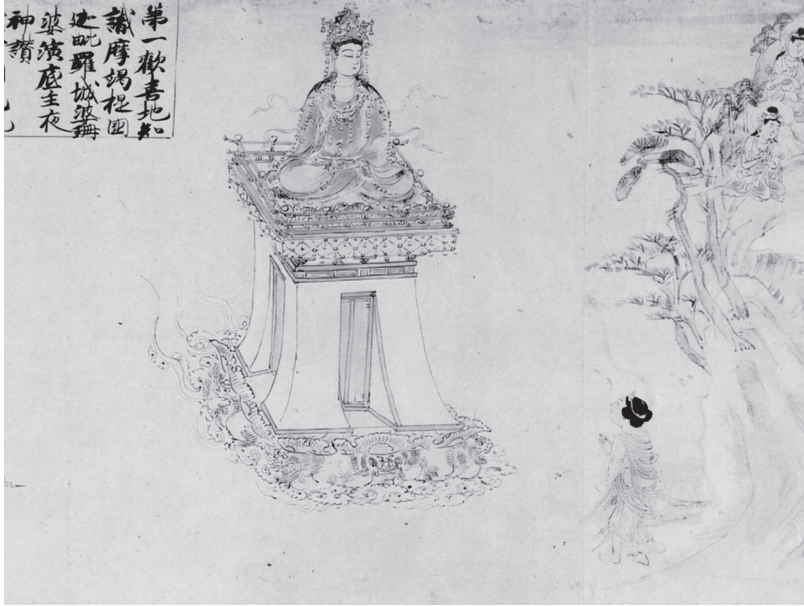 第一歡喜地知
識摩竭提国
迦毗羅城婆珊
婆演底主夜
神讃